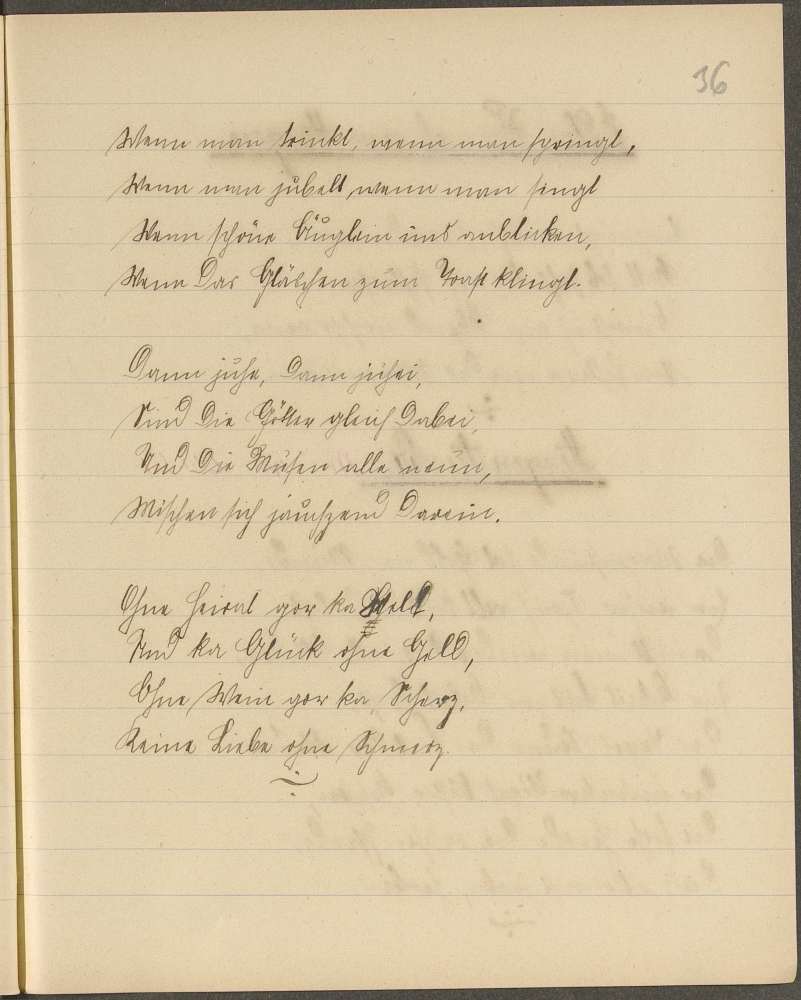 36
Wenn man trinkt, wenn man springt,
Wenn man jubelt wenn man singt
Wenn schöne Äuglein uns anblicken,
Wenn das Gläschen zum Toast klingt.
Dann juhe, dann juhei,
Sind die Götter gleich dabei,
Und die Musen alle neun,
Mischen sich jauchzend darein.
Ohne Heirat gar ka Welt,
Und ka Glück ohne Geld,
Ohne Wein gar ka Scherz,
Keine Liebe ohne Schmerz.